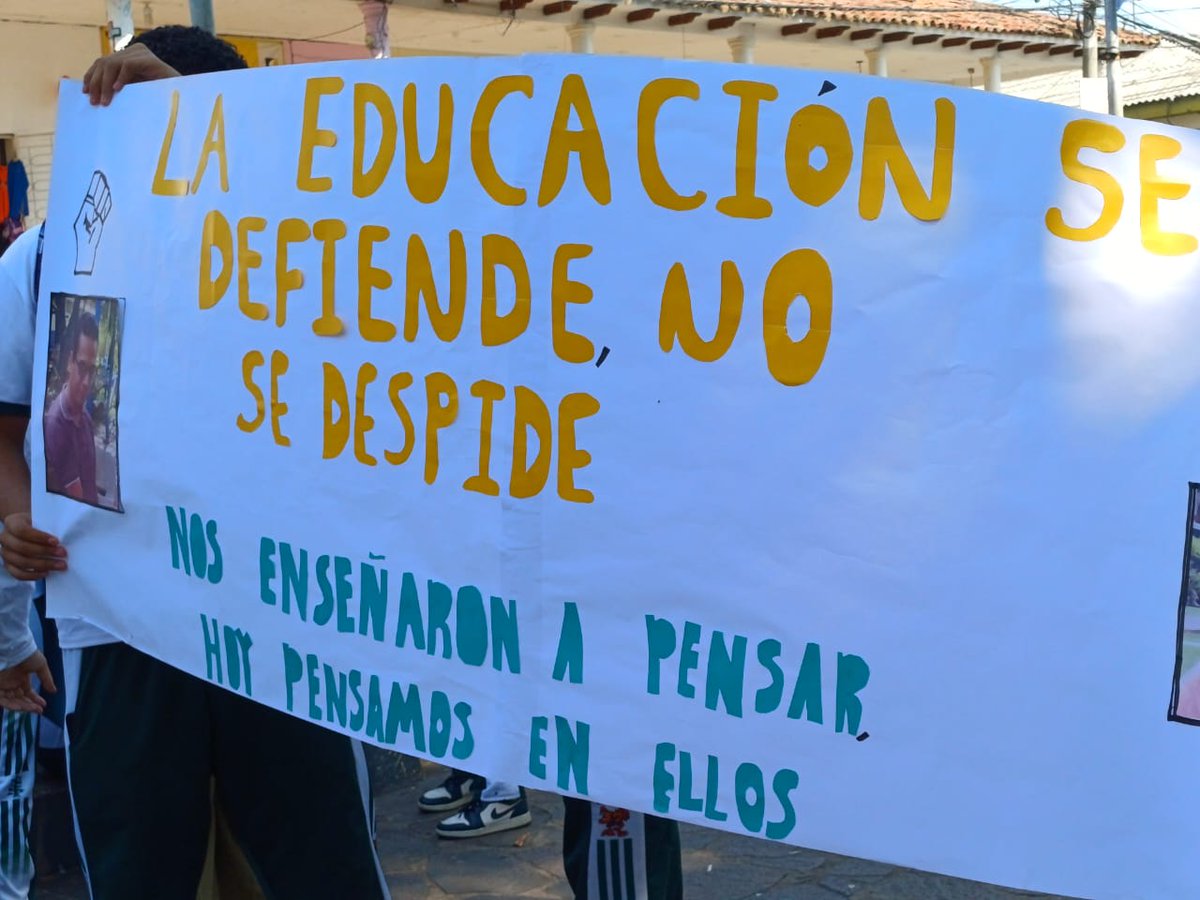 LA EDUCACIÓN SE
DEFIENDE, NO
SE DESPIDE
NOS ENSEÑARON A PENSAR,
HOY PENSAMOS EN ELLOS